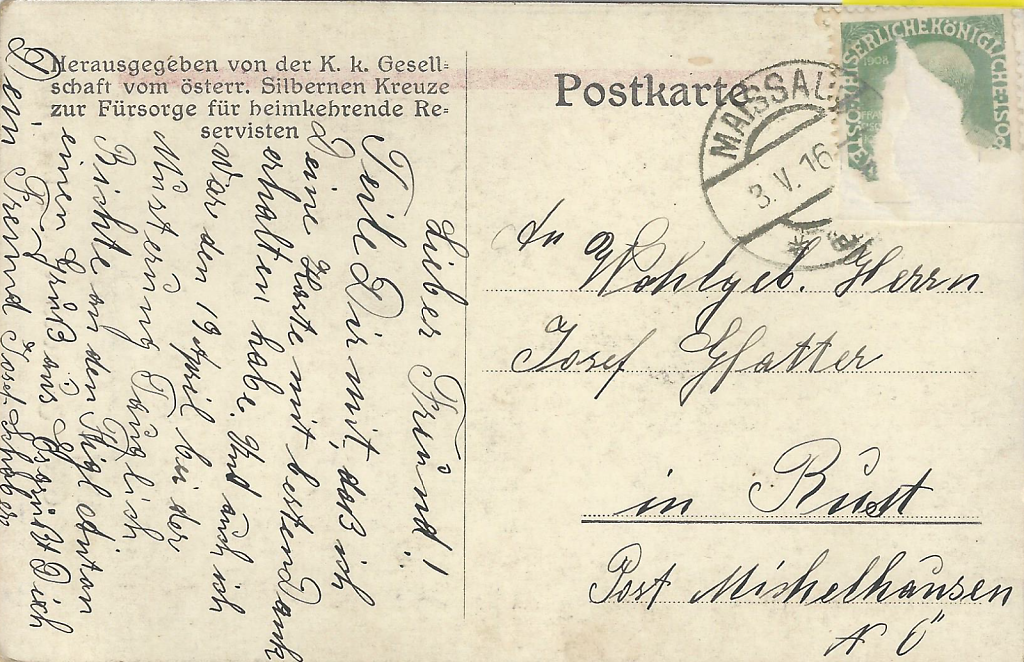 Herausgegeben von der K. k. Gesell=
schaft vom österr. Silbernen Kreuze
zur Fürsorge für heimkehrende Re=
servisten
Postkarte
MAISSAU
3.V.16
1908
Lieber Freund!
Teile Dir mit, daß ich
Deine Karte mit bestendank
erhalten habe. Und auch ich
war den 19 April bei der
Musterung Tauglich
Richte an den Aigl Antan
einen Gruß aus
Dein Freund Josef
An Wohlgeb. Herrn
Josef Glatter
in Rust
Post Michelhausen
N Ö